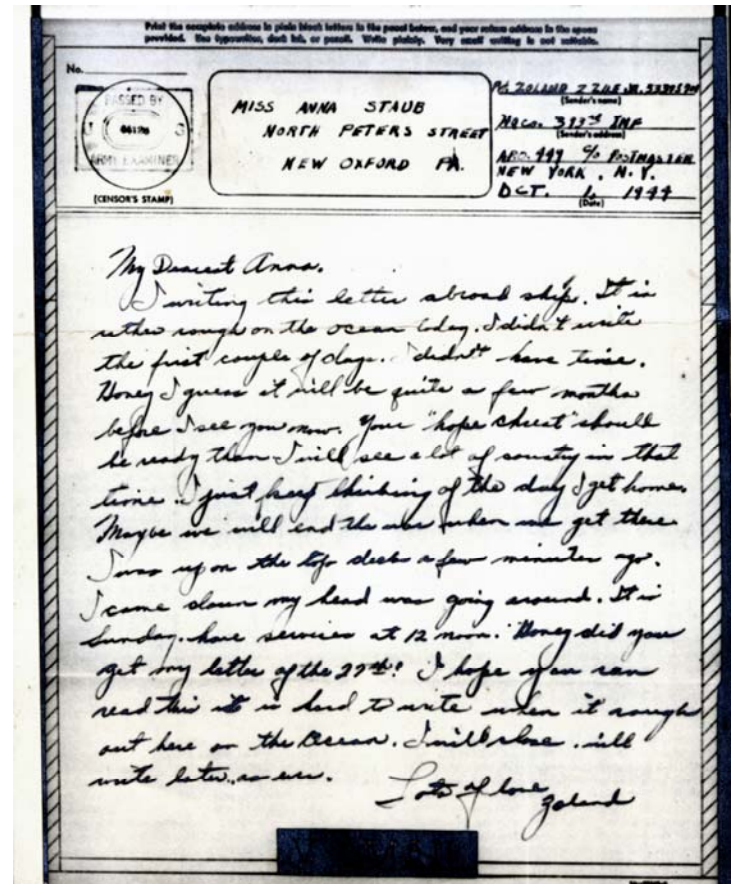 Print the complete address in plain block letters in the panel below, and your return address in the space
provided. Use typewriter, dark ink, or pencil. Write plainly. Very small writing is not suitable.
No.
PASSED BY
U S
ARMY EXAMINER
(CENSOR'S STAMP)
MISS ANNA STAUB
NORTH PETERS STREET
NEW OXFORD PA.
ZOLAND Z ZILE JR.
(Sender's name)
HQ CO. 399TH INF
(Sender's address)
APO. 449 c/o POSTMASTER
NEW YORK, N. Y.
OCT. 1, 1944
(Date)
My Dearest Anna.
I writing this letter abroad ship. It is
rather rough on the ocean today. I didn't write
the first couple of days. I didn't have time.
Honey I guess it will be quite a few months
before I see you now. Your "hope chest" should
be ready then I will see a lot of country in that
time. I just keep thinking of the day I get home.
Maybe we will end the war when we get there
I was up on the top deck a few minutes ago.
I came down my head was going around. It is
Sunday. have services at 12 noon. Honey did you
get my letter of the 27th? I hope you can
read this it is hard to write when it rough
out here on the Ocean. I will close. will
write later.
Lots of love
Zoland